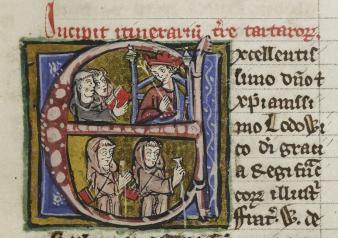 Incipit itinerariū t̄re tartarorꝝ.
Excellentis
simo dn̄o ⁊
xp̄ianissi
mo Lodowi
co di graci
a Regi frāc
corꝝ illust
frat̄. W. de